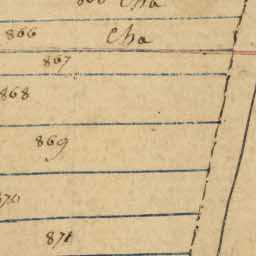 Cha
866 Cha
867
868
869
870
871